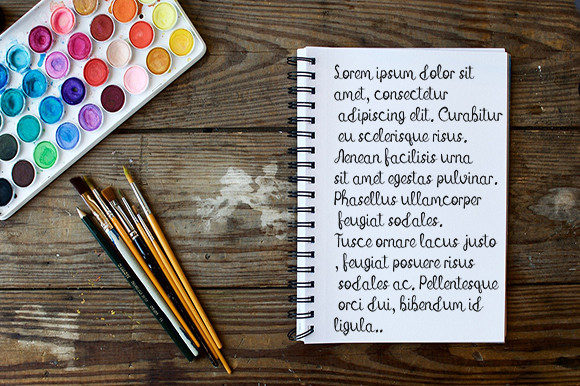 Lorem ipsum dolor sit
amet, consectetur
adipiscing elit. Curabitur
eu scelerisque risus.
Aenean facilisis urna
sit amet egestas pulvinar.
Phasellus ullamcorper
feugiat sodales.
Fusce ornare lacus justo
, feugiat posuere risus
sodales ac. Pellentesque
orci dui, bibendum id
ligula..